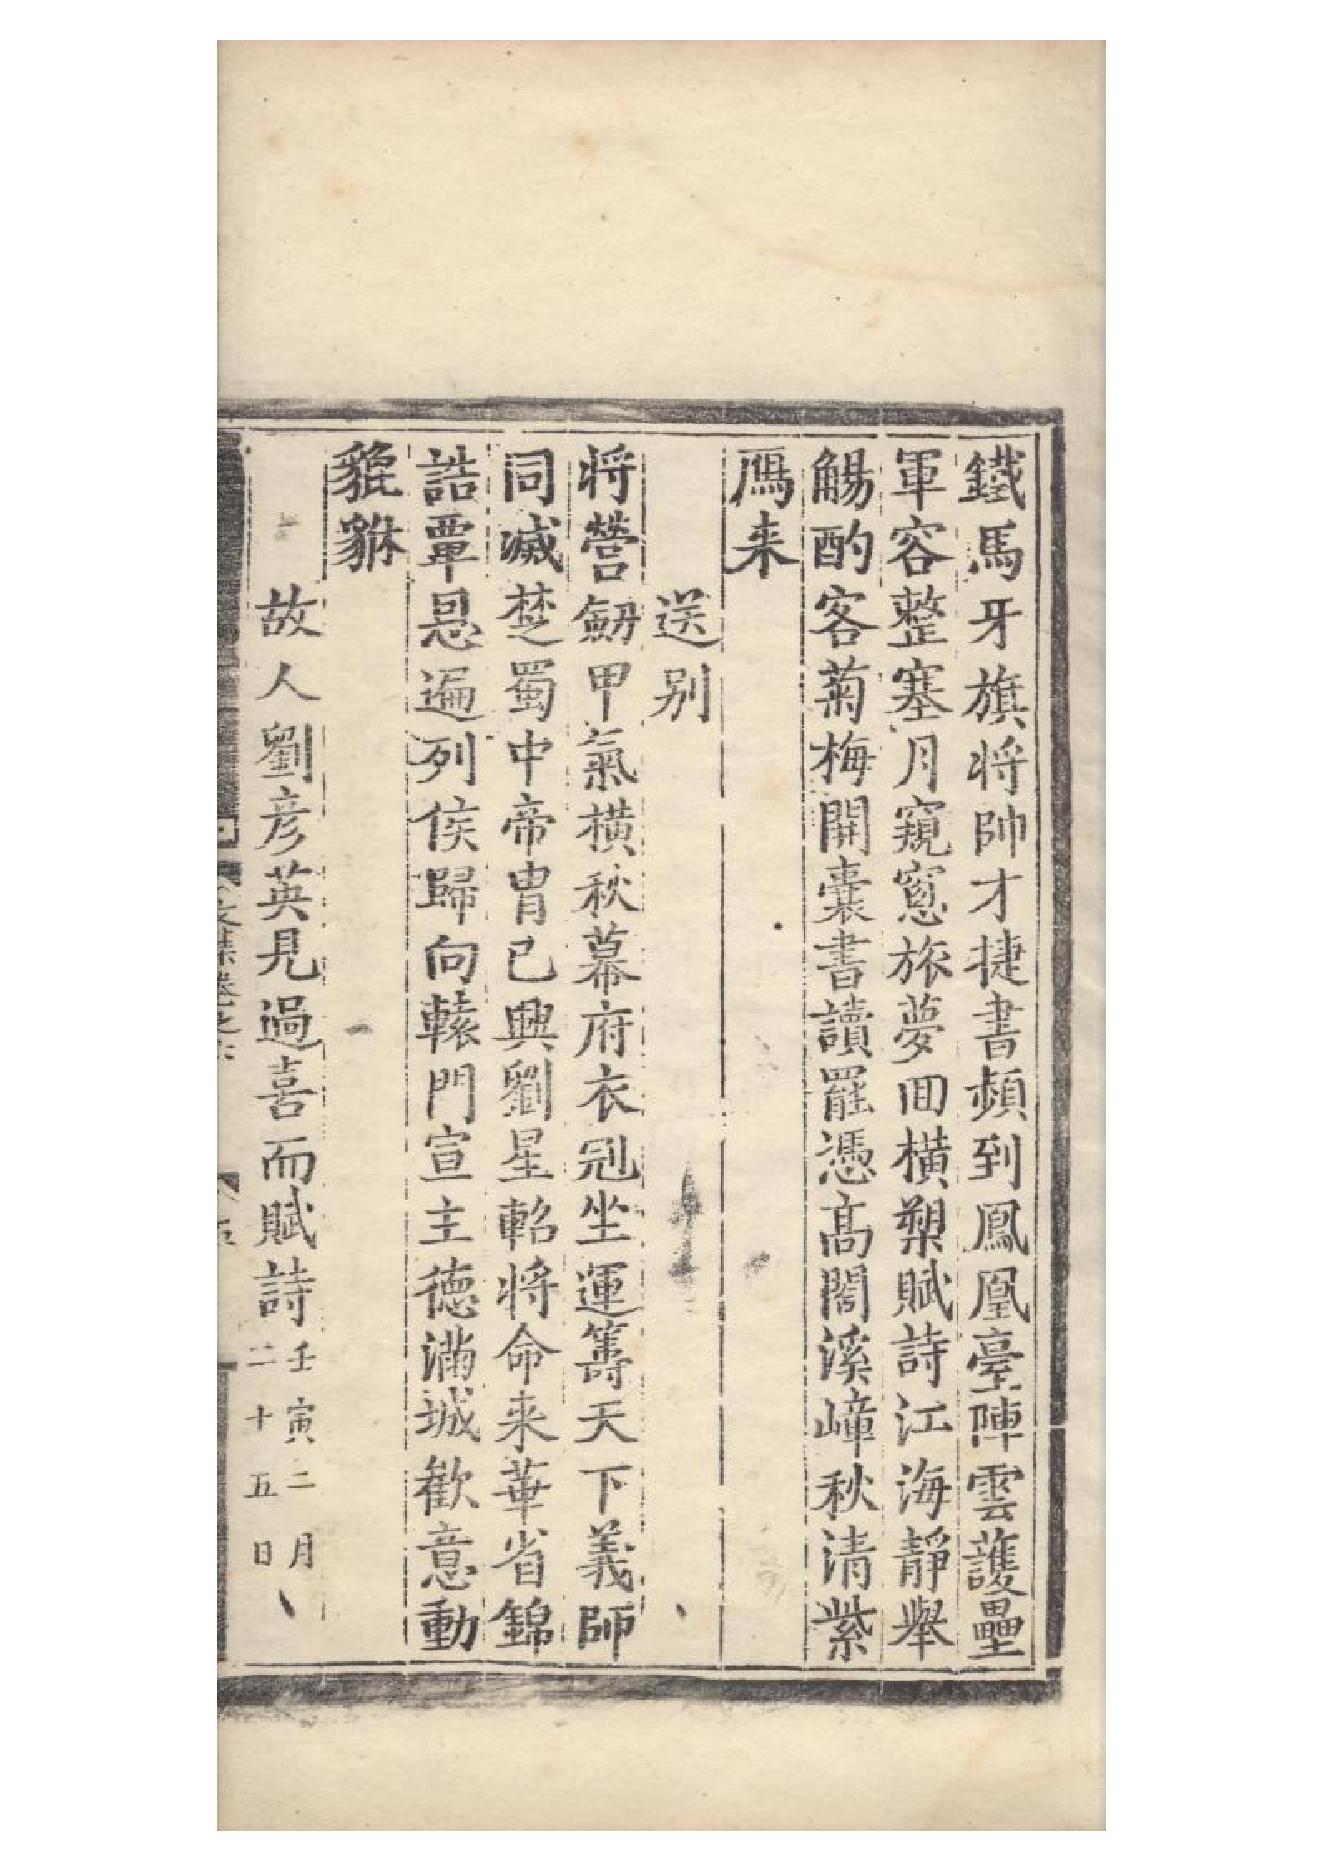 鐵馬牙旗将帥才捷書頻到鳳凰臺陣雲護壘
軍容整塞月窺窓旅夢囬橫槊賦詩江海靜舉
觴酌客菊梅開囊書讀罷憑髙閣溪嶂秋清紫
鴈来
送别
将營劒甲氣橫秋幕府衣冠坐運籌天下義師
同滅楚蜀中帝胄已興劉星軺将命来華省錦
誥覃恩遍列侯歸向轅門宣主德滿城歡意動
貔貅
故人劉彦英見過喜而賦詩壬寅二月
二十五日